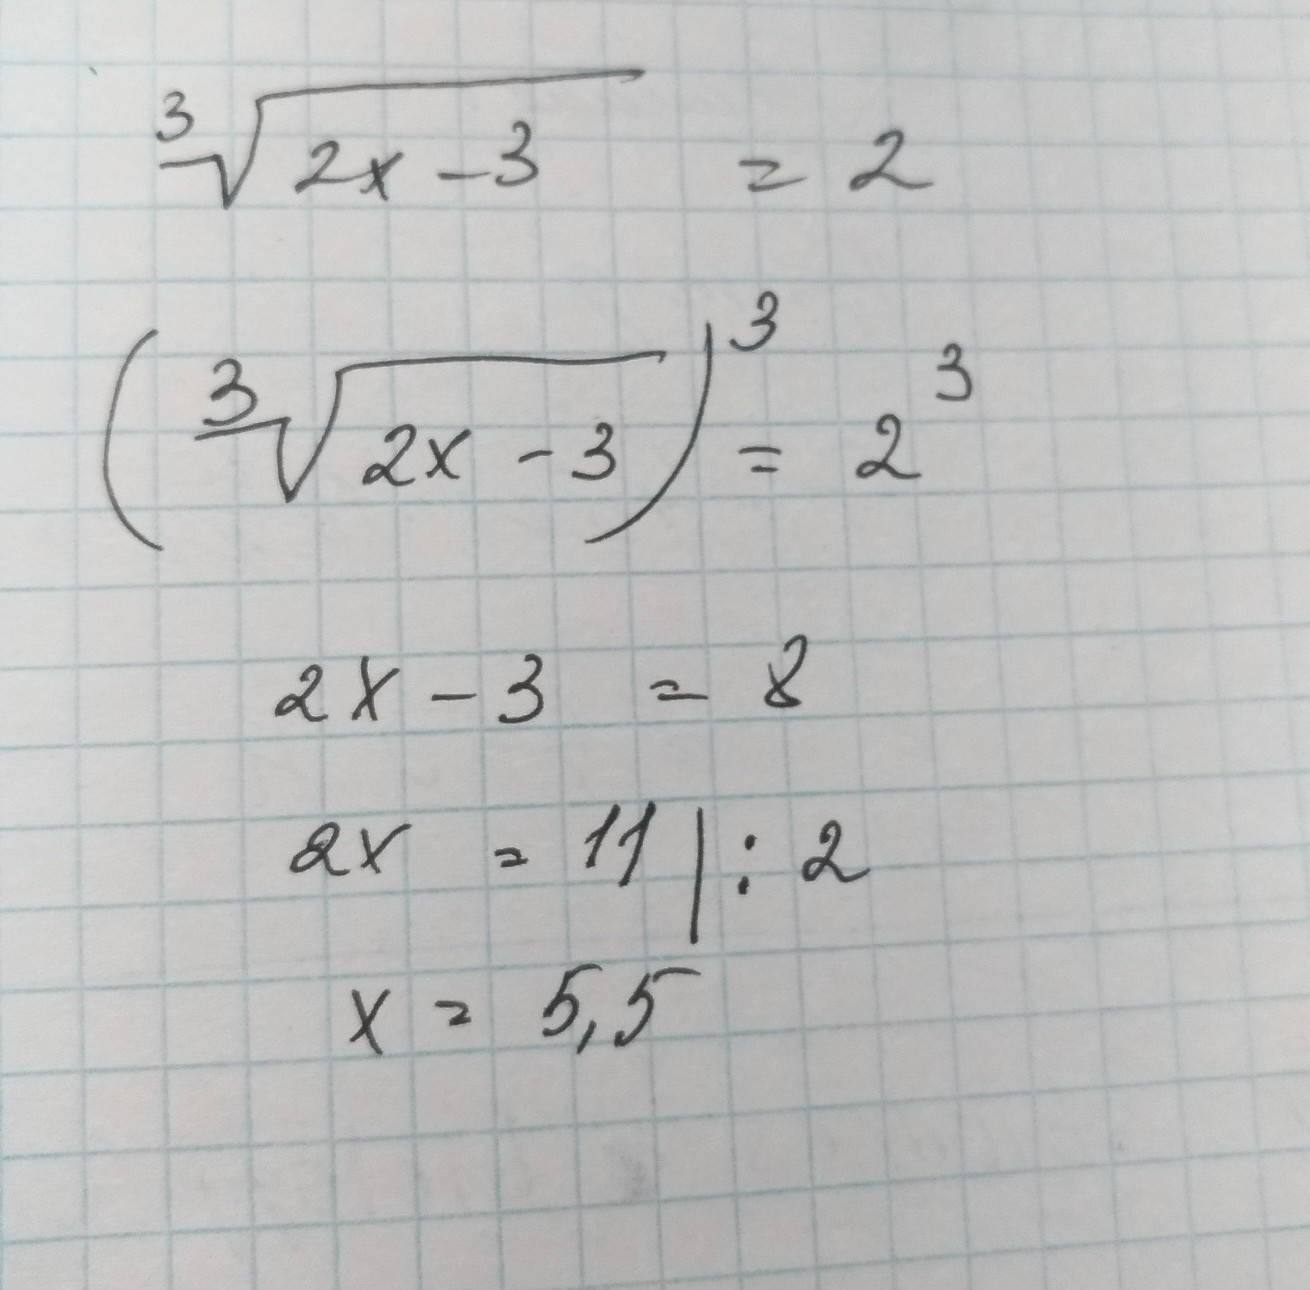 ∛(2x - 3) = 2
(∛(2x - 3))³ = 2³
2x - 3 = 8
2x = 11 | : 2
x = 5,5